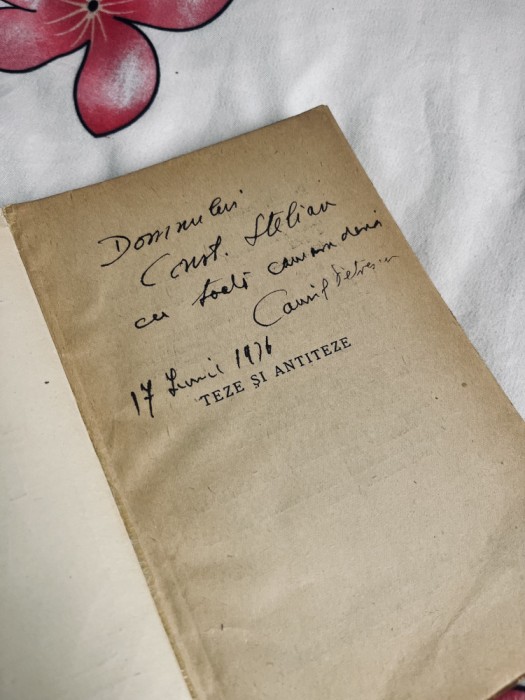 Domnului
Const. Stelian
cu toată
Camil Petrescu
17 Iunie 1936
TEZE ȘI ANTITEZE